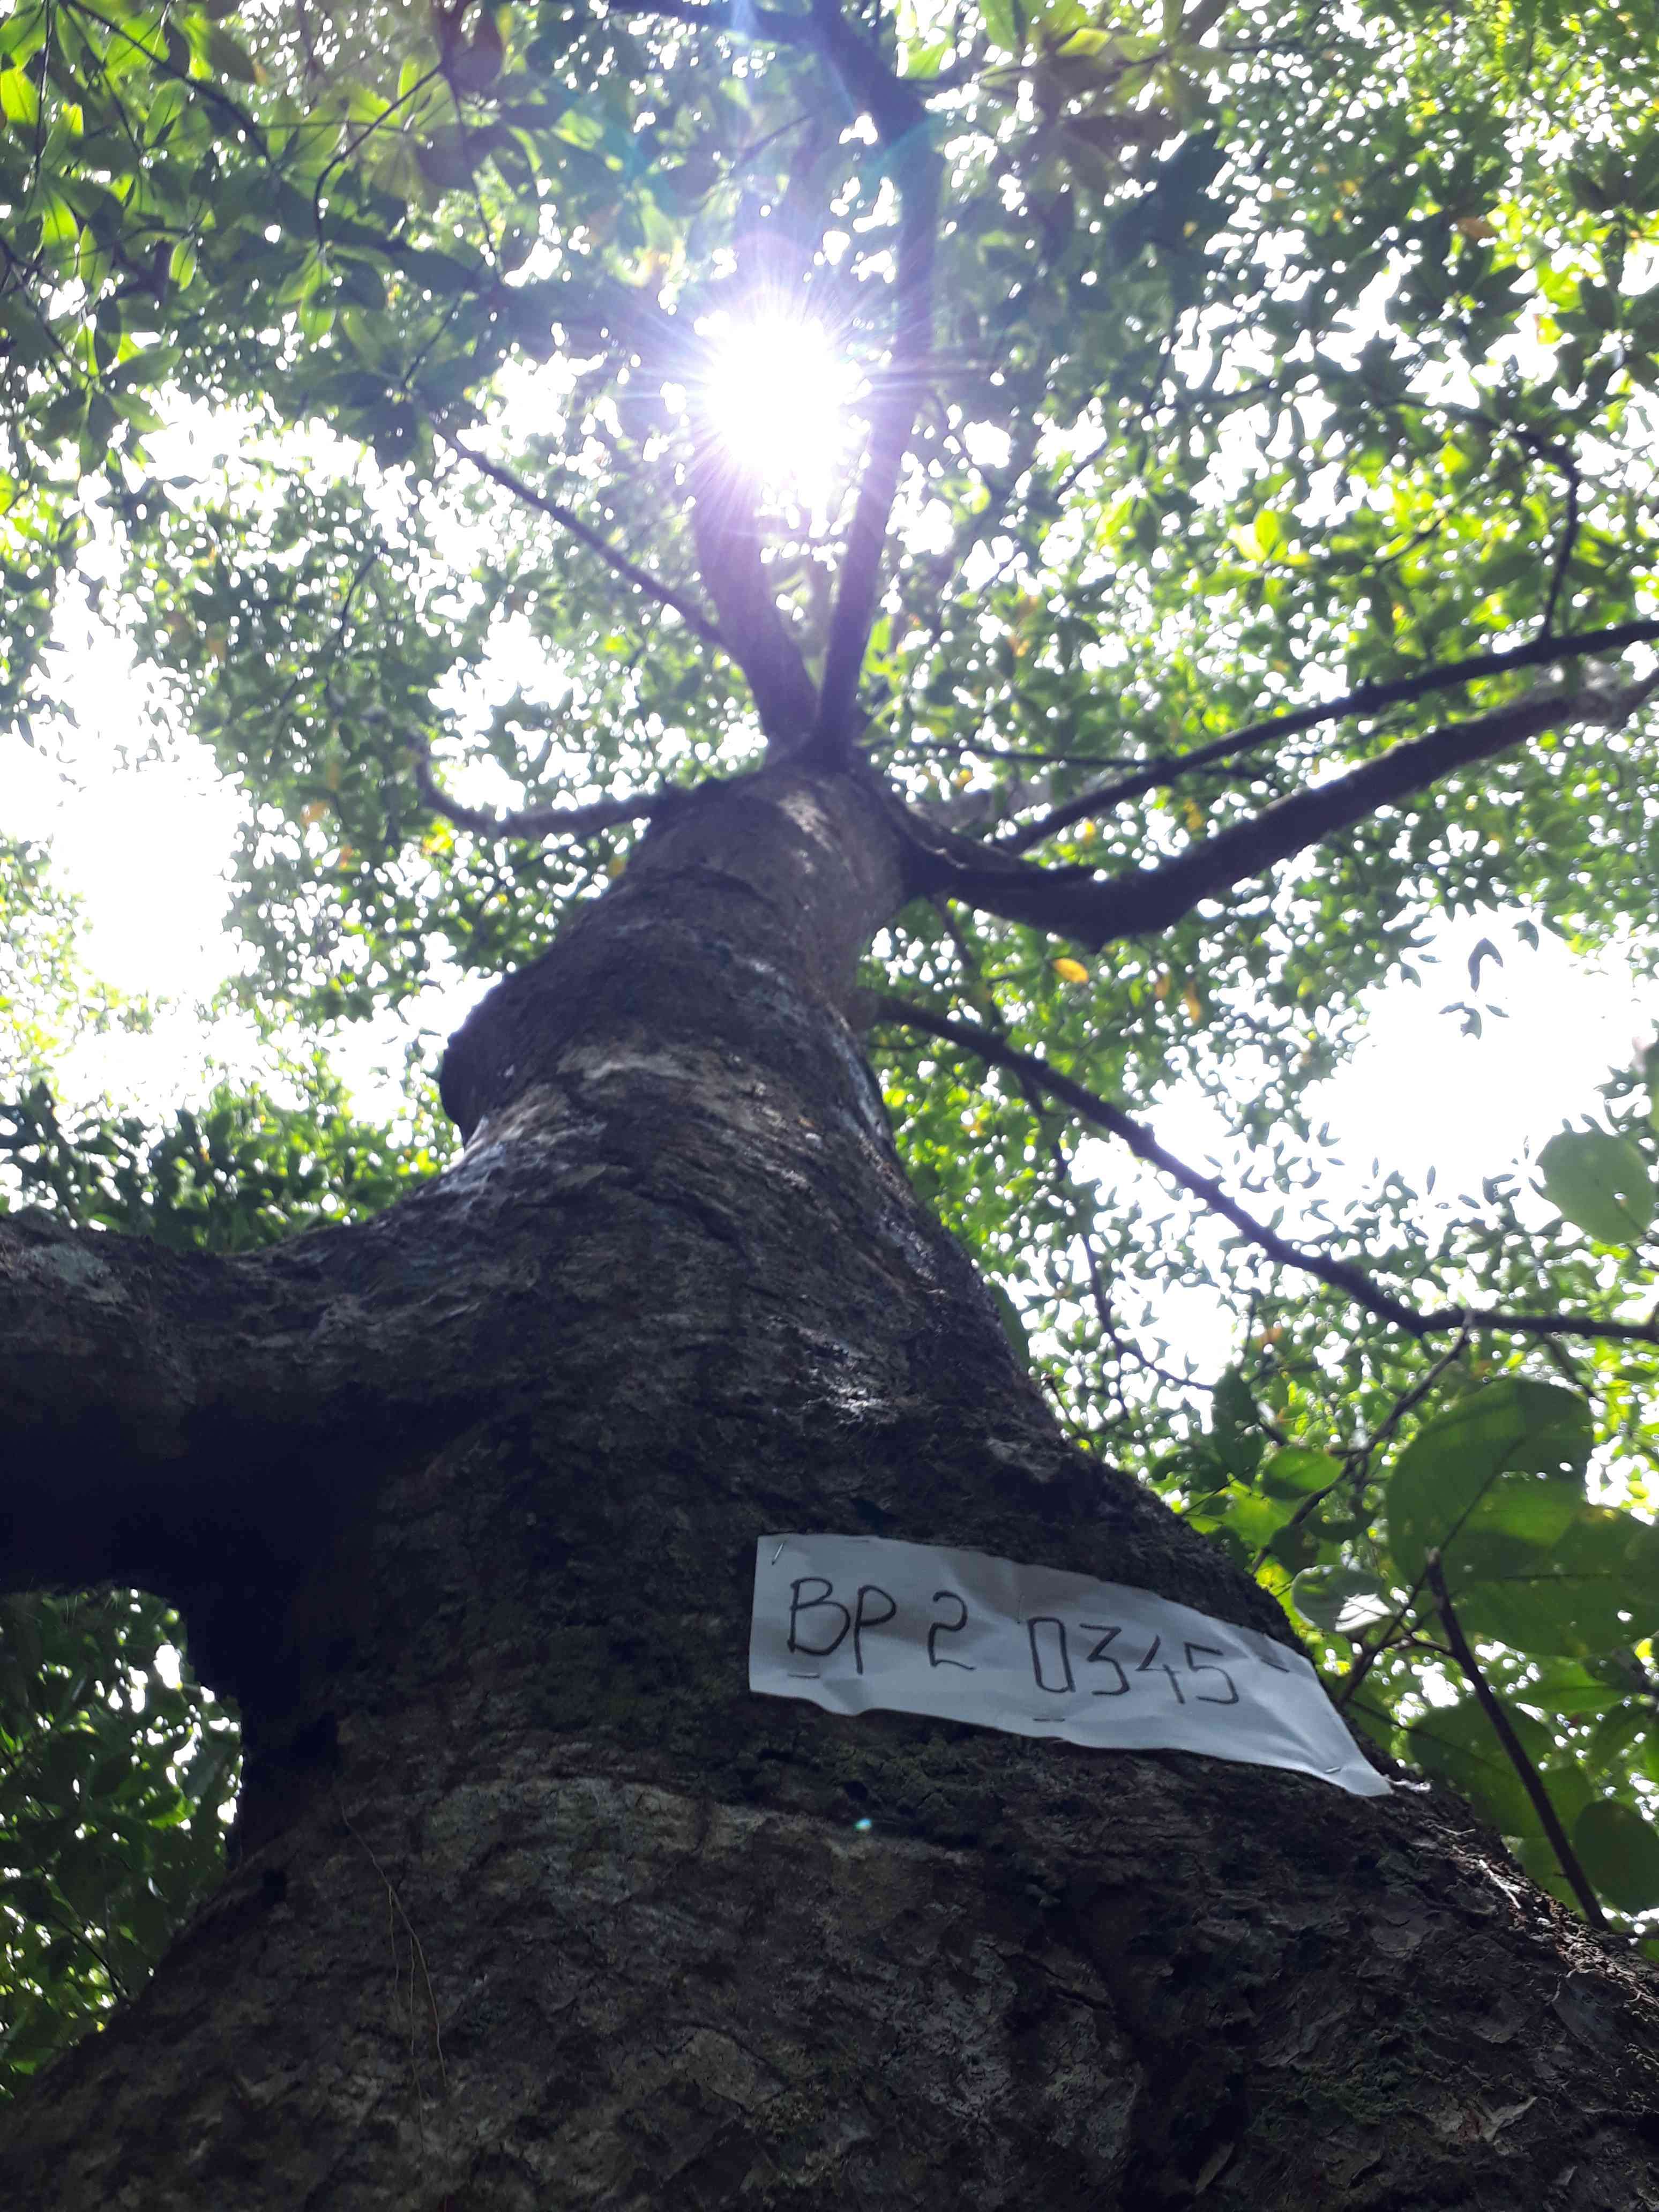 BP 2 0345